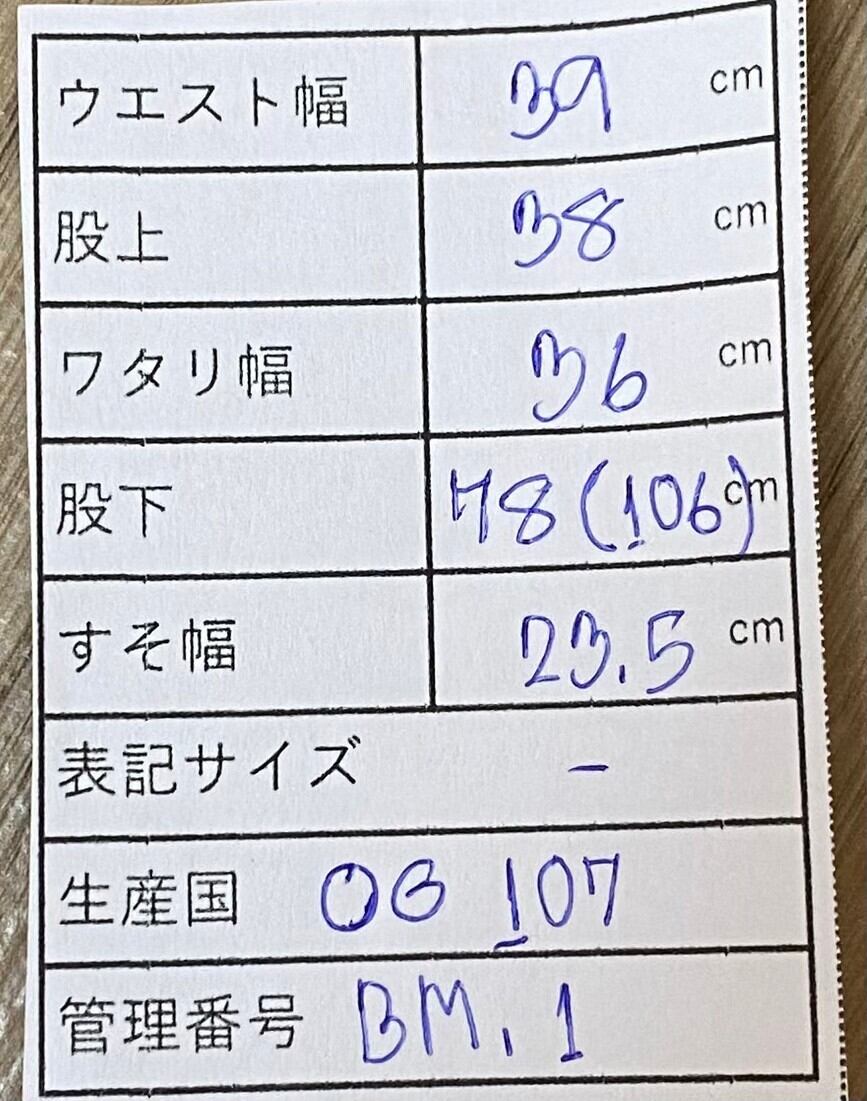 ウエスト幅 39 cm
股上 38 cm
ワタリ幅 36 cm
股下 78 (106) cm
すそ幅 23.5 cm
表記サイズ -
生産国 OG 107
管理番号 BM.1